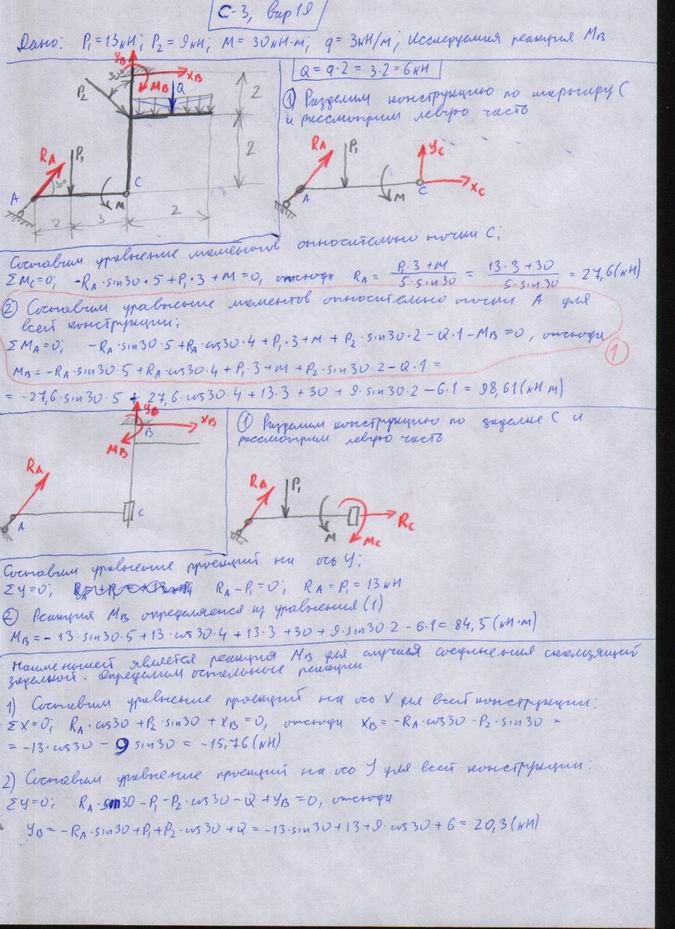 С-3, вар 19
Дано: P₁=13кН; P₂=9кН; M=30кН·м; q=3кН/м; Исследуемая реакция M_B
Y_B
30°
X_B
M_B
Q
P₂
2
2
R_A
P₁
30°
A
C
M
2 3 2
Q=q·2=3·2=6кН
① Разделим конструкцию по шарниру C
и рассмотрим левую часть
R_A
P₁
Y_C
A
M
C
X_C
Составим уравнение моментов относительно точки C;
ΣM_C=0; -R_A·sin30·5+P₁·3+M=0, откуда R_A = (P₁·3+M)/(5·sin30) = (13·3+30)/(5·sin30) = 27,6(кН)
② Составим уравнение моментов относительно точки A для
всей конструкции:
ΣM_A=0; -R_A·sin30·5+R_A·cos30·4+P₁·3+M+P₂·sin30·2-Q·1-M_B=0, откуда
M_B=-R_A·sin30·5+R_A·cos30·4+P₁·3+M+P₂·sin30·2-Q·1=
①
=-27,6·sin30·5+27,6·cos30·4+13·3+30+9·sin30·2-6·1=98,61(кН·м)
Y_B
X_B
B
M_B
R_A
A
C
① Разделим конструкцию по заделке C и
рассмотрим левую часть
R_A
P₁
M
R_C
M_C
Составим уравнение проекций на ось Y;
ΣY=0; R_A-P₁=0; R_A=P₁=13кН
② Реакция M_B определяется из уравнения (1)
M_B=-13·sin30·5+13·cos30·4+13·3+30+9·sin30·2-6·1=84,5(кН·м)
Наименьшей является реакция M_B для случая соединения скользящей
заделкой. Определим остальные реакции.
1) Составим уравнение проекций на ось X для всей конструкции:
ΣX=0; R_A·cos30+P₂·sin30+X_B=0, откуда X_B=-R_A·cos30-P₂·sin30=
=-13·cos30-9sin30=-15,76(кН)
2) Составим уравнение проекций на ось Y для всей конструкции:
ΣY=0; R_A·sin30-P₁-P₂·cos30-Q+Y_B=0, откуда
Y_B=-R_A·sin30+P₁+P₂·cos30+Q=-13·sin30+13+9·cos30+6=20,3(кН)